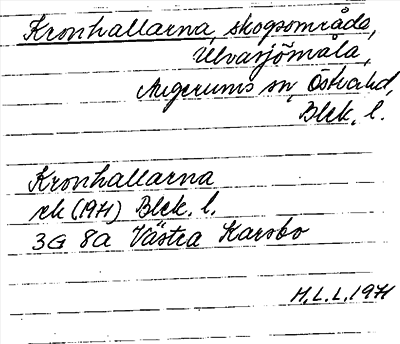 Kronhallarna, skogsområde,
Ulvasjömåla,
Augerums sn, Östra hd,
Blek. l.
Kronhallarna
rk (1971) Blek. l.
3G 8a Västra Karsbo
H.L.L. 1971